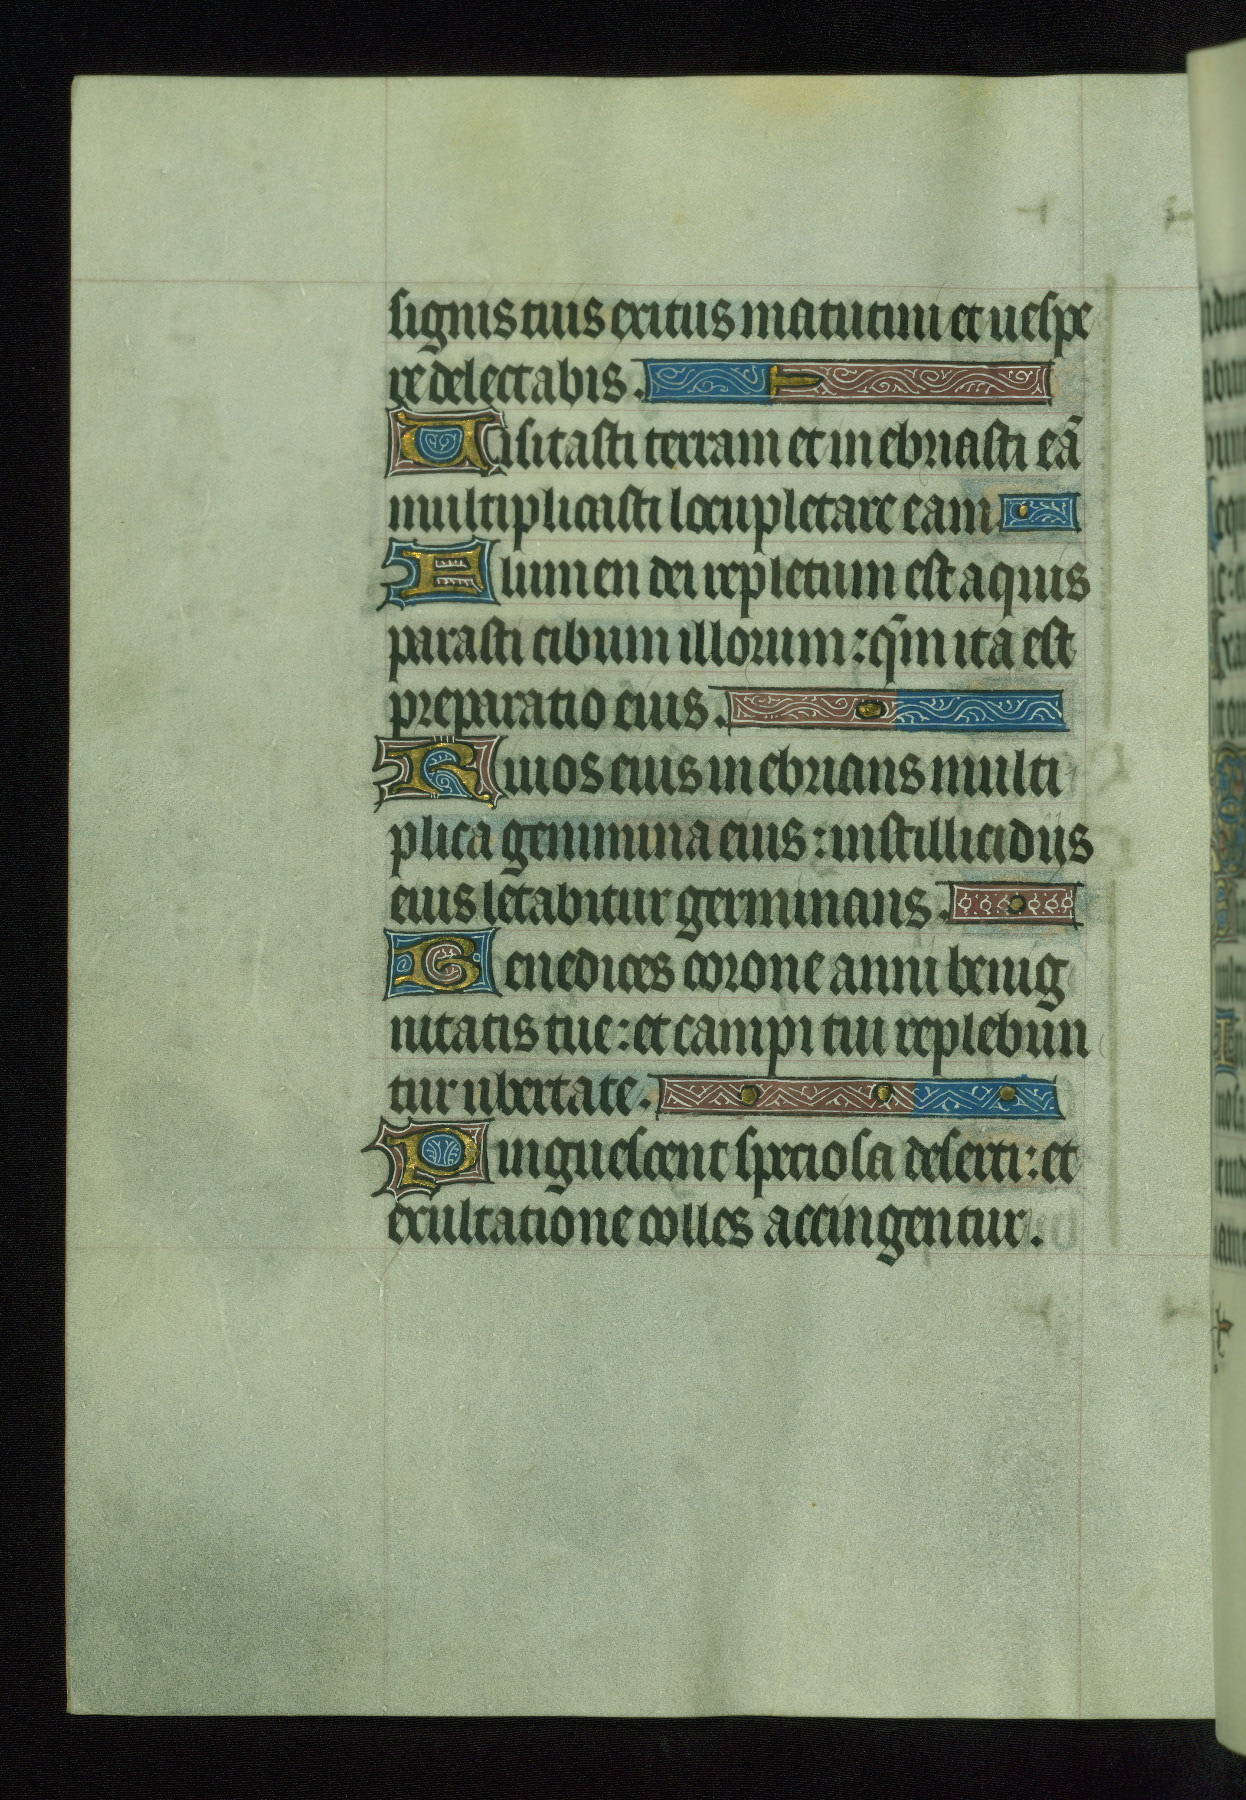 signis tuis exitus matutini et uespe
re delectabis.
Uisitasti terram et inebriasti eã
multiplicasti locupletare eam
Flumen dei repletum est aquis
parasti cibum illorum: qm̃ ita est
preparatio eius.
Riuos eius inebrians multi
plica genimina eius: in stillicidiis
eius letabitur germinans.
Benedices corone anni benig
nitatis tue: et campi tui replebun
tur ubertate.
Pinguescent speciosa deserti: et
exultatione colles accingentur.